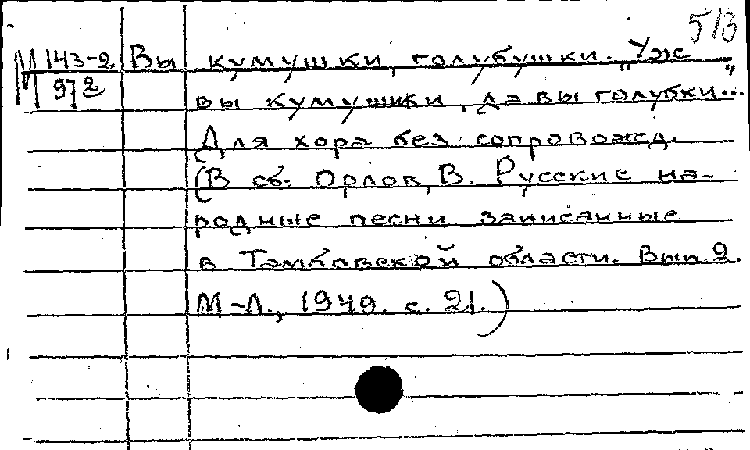 513
М 143-2 Вы кумушки, голубушки. "Уж
972 вы кумушки, да вы голубки..."
Для хора без сопровожд.
(В сб. Орлов, В. Русские на-
родные песни записанные
в Тамбовской области. Вып 2.
М-Л., 1949. с. 21.)